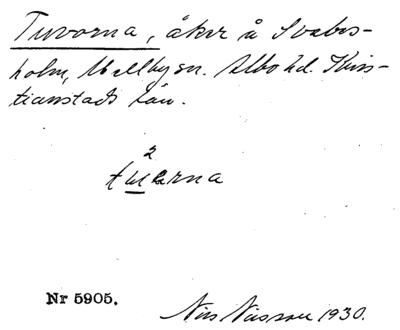 Tuvorna, åker å Svabes-
holm, Mellby sn. Albo hd. Kris-
tianstads län.
2
tuerna
Nr 5905.
Nils Nilsson 1930.